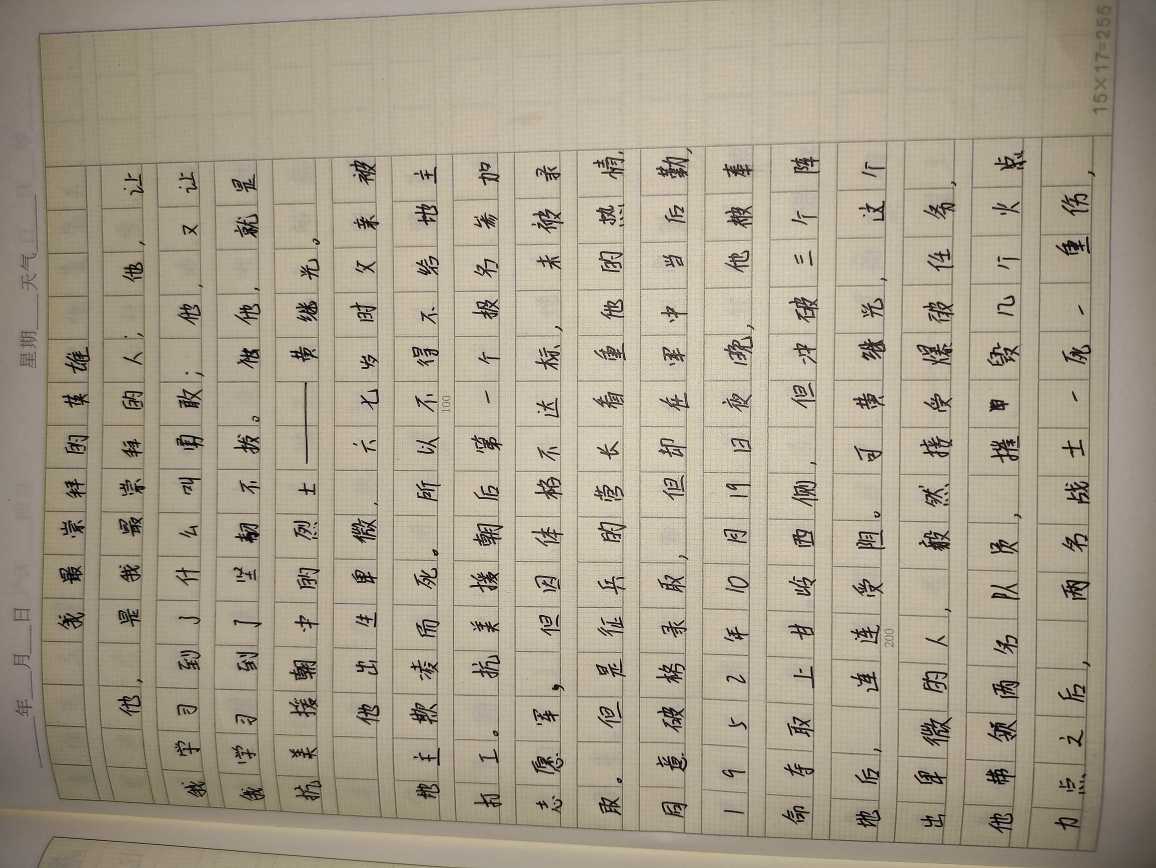 年 月 日 星期 天气
我最崇拜的英雄
他,是我最崇拜的人;他,让
我学习到了什么叫勇敢;他,又让
我学习到了坚韧不拔。他,就是
抗美援朝中的烈士——黄继光。
他出生卑微,六七岁时父亲被
地主欺凌而死。所以不得不给地主
100
打工。抗美援朝后第一个报名参加
志愿军,但因体格不达标,未被录
取。但是征兵的营长看重他的热情,
同意破格录取,但却在军中当后勤,
1952年10月19日夜晚,他被奉
命夺取上甘岭西侧,但冲破三个阵
地后,连连受阻。可黄继光,这个
200
出卑微的人,毅然接受爆破任务,
他带领两名队员,摧毁几个火点
力点之后,两名战士一死一重伤,
15×17=255